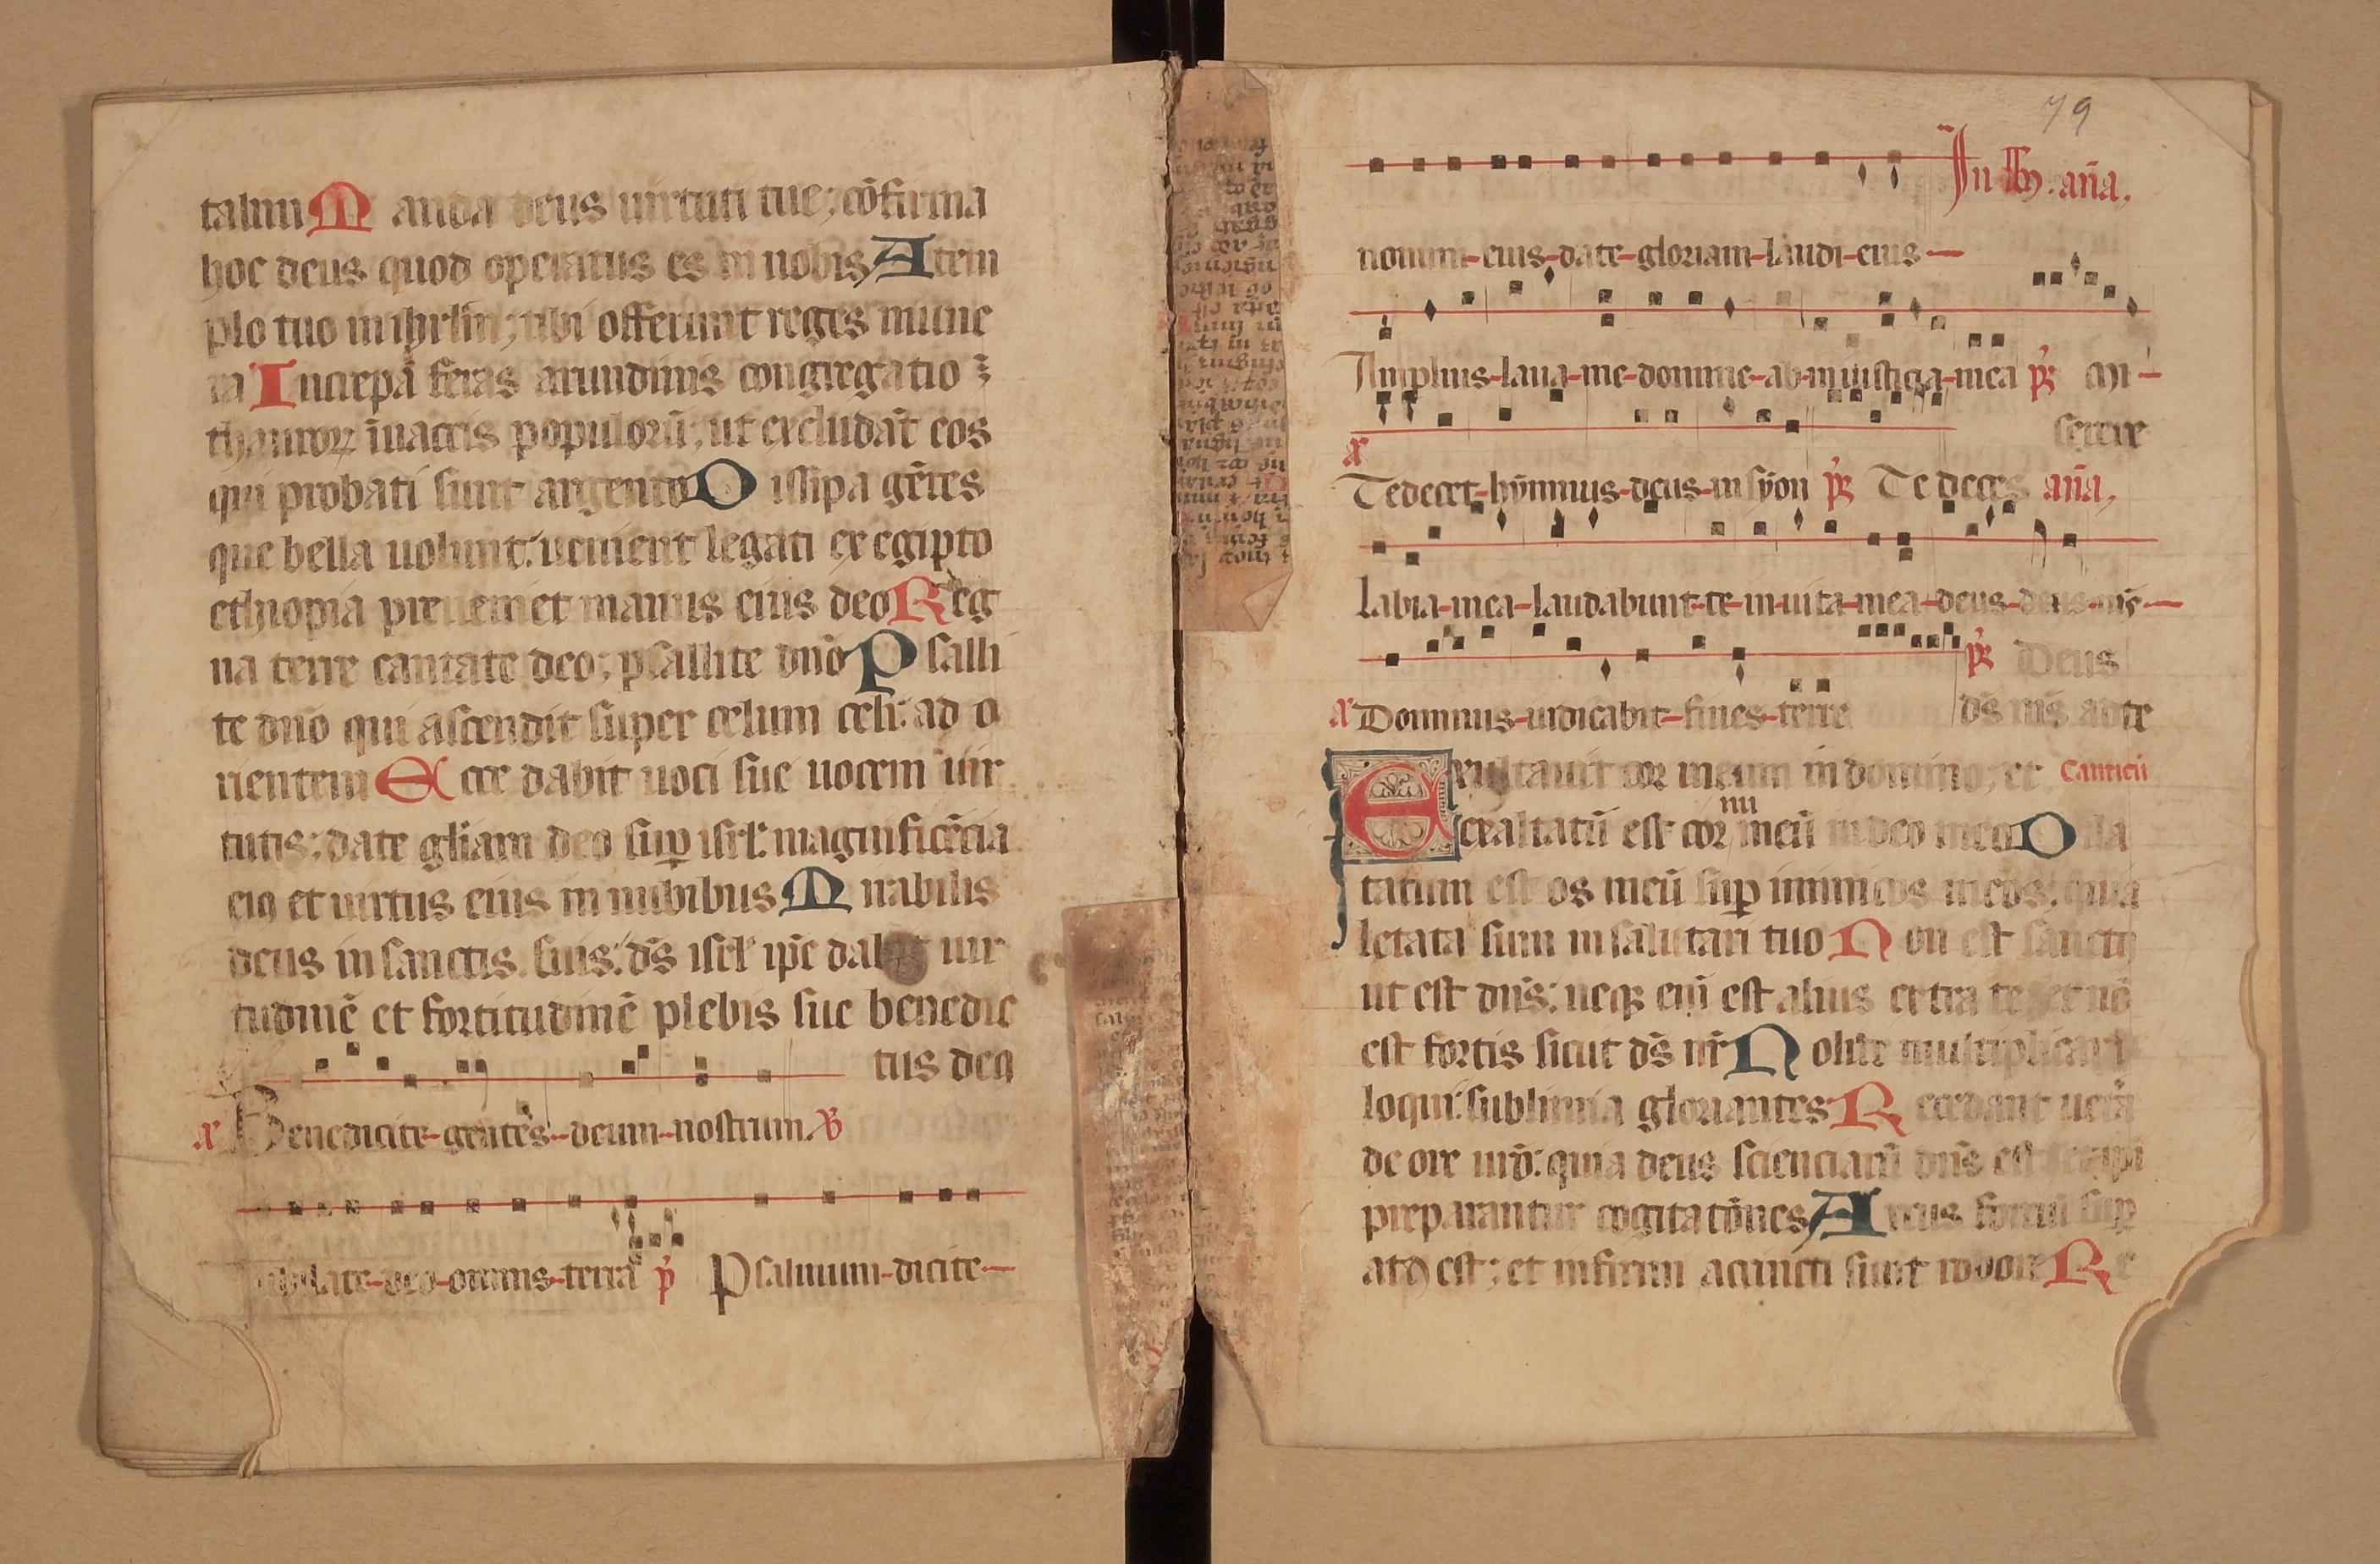 talnu M anda deus uirtuti tue; cōfirma
hoc deus quod operatus es in nobis A tem
plo tuo in ihrlm; tibi offerunt reges mune
ra Increpa feras arundinis congregatio
thauroꝝ i uaccis populorū; ut excludāt eos
qui probati sunt argento D issipa gētes
que bella uolunt: uenient legati ex egipto
ethiopia preueniet manus eius deo Reg
na terre cantate deo; psallite dn̄o P salli
te dn̄o qui ascendit super celum celi: ad o
rientem E cce dabit uoci sue uocem uir
tutis: date gl̄iam deo sup̱ isrl: magnificēcia
eiꝯ et uirtus eius in nubibus M irabilis
deus in sanctis suis: ds̄ isrl ip̄e dabit uir
tudinē et fortitudinē plebis sue benedic
tus deꝯ
a Benedicite-gentes-deum-nostrum. ℣
Iubilate-deo-omnis-terra p̄ Psalmum-dicite-
79
In añā.
nomini-eius-date-gloriam-laudi-eius-
Amplius-laua-me-domine-ab-iniusticia-mea pꝫ Mi-
serere
a
Te decet-hȳmnus-deus-in syon pꝫ Te decet añā,
Labia-mea-laudabunt-te-in-uita-mea-deus-deus-mꝭ-
pꝫ Deus
a Dominus-iudicabit-fines-terre ds̄ ms̄ ad te
Exultauit cor meum in domino; et Canticū
exaltatū est cor nu meū in deo meo D ila
tatum est os meū sup̱ inimicos meos: quia
letata sum in salutari tuo N on est sanctꝯ
ut est dn̄s: neqꝫ eni est alius extra te et nō
est fortis sicut ds̄ nr̄ N olite multiplicare
loqui: sublimia gloriantes R ecedant uetera
de ore uro: quia deus scienciarū dn̄s est et ip̄i
preparantur cogitatōnes A rcus fortiū sup̱
atꝯ est; et infirmi accincti sunt robore Re